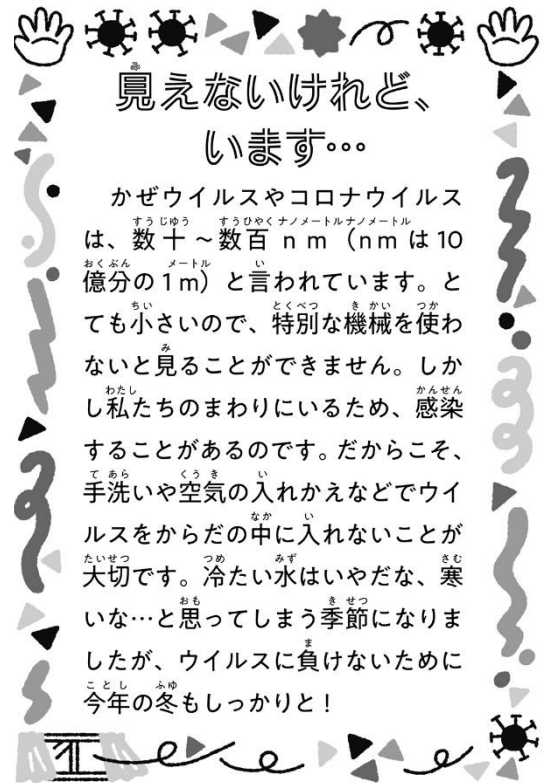 見えないけれど、
います…
かぜウイルスやコロナウイルス
は、数十～数百nm（nmは10
億分の1m）と言われています。と
ても小さいので、特別な機械を使わ
ないと見ることができません。しか
し私たちのまわりにいるため、感染
することがあるのです。だからこそ、
手洗いや空気の入れかえなどでウイ
ルスをからだの中に入れないことが
大切です。冷たい水はいやだな、寒
いな…と思ってしまう季節になりま
したが、ウイルスに負けないために
今年の冬もしっかりと！